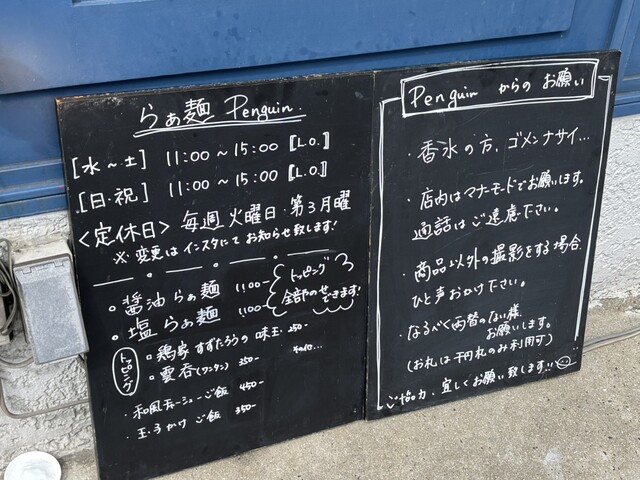 らぁ麺 Penguin.
[水～土] 11:00～15:00 〚L.O.〛
[日・祝] 11:00～15:00 〚L.O.〛
〈定休日〉毎週火曜日・第3月曜
※変更はインスタにてお知らせ致します!
・醤油らぁ麺 1100-
・塩らぁ麺 1100-
トッピング
全部のせ
できます!
トッピング
・鶏家 すずたろうの 味玉 250-
・雲呑(ワンタン) 350-
・和風チャーシューご飯 450-
・玉子かけご飯 350-
Penguin からの お願い
・香水の方、ゴメンナサイ…
・店内はマナーモードでお願います。
通話はご遠慮下さい。
・商品以外の撮影をする場合、
ひと声おかけ下さい。
・なるべく両替のない様、
お願いします。
(お札は千円札のみ利用可)
ご協力、宜しくお願い致します!!